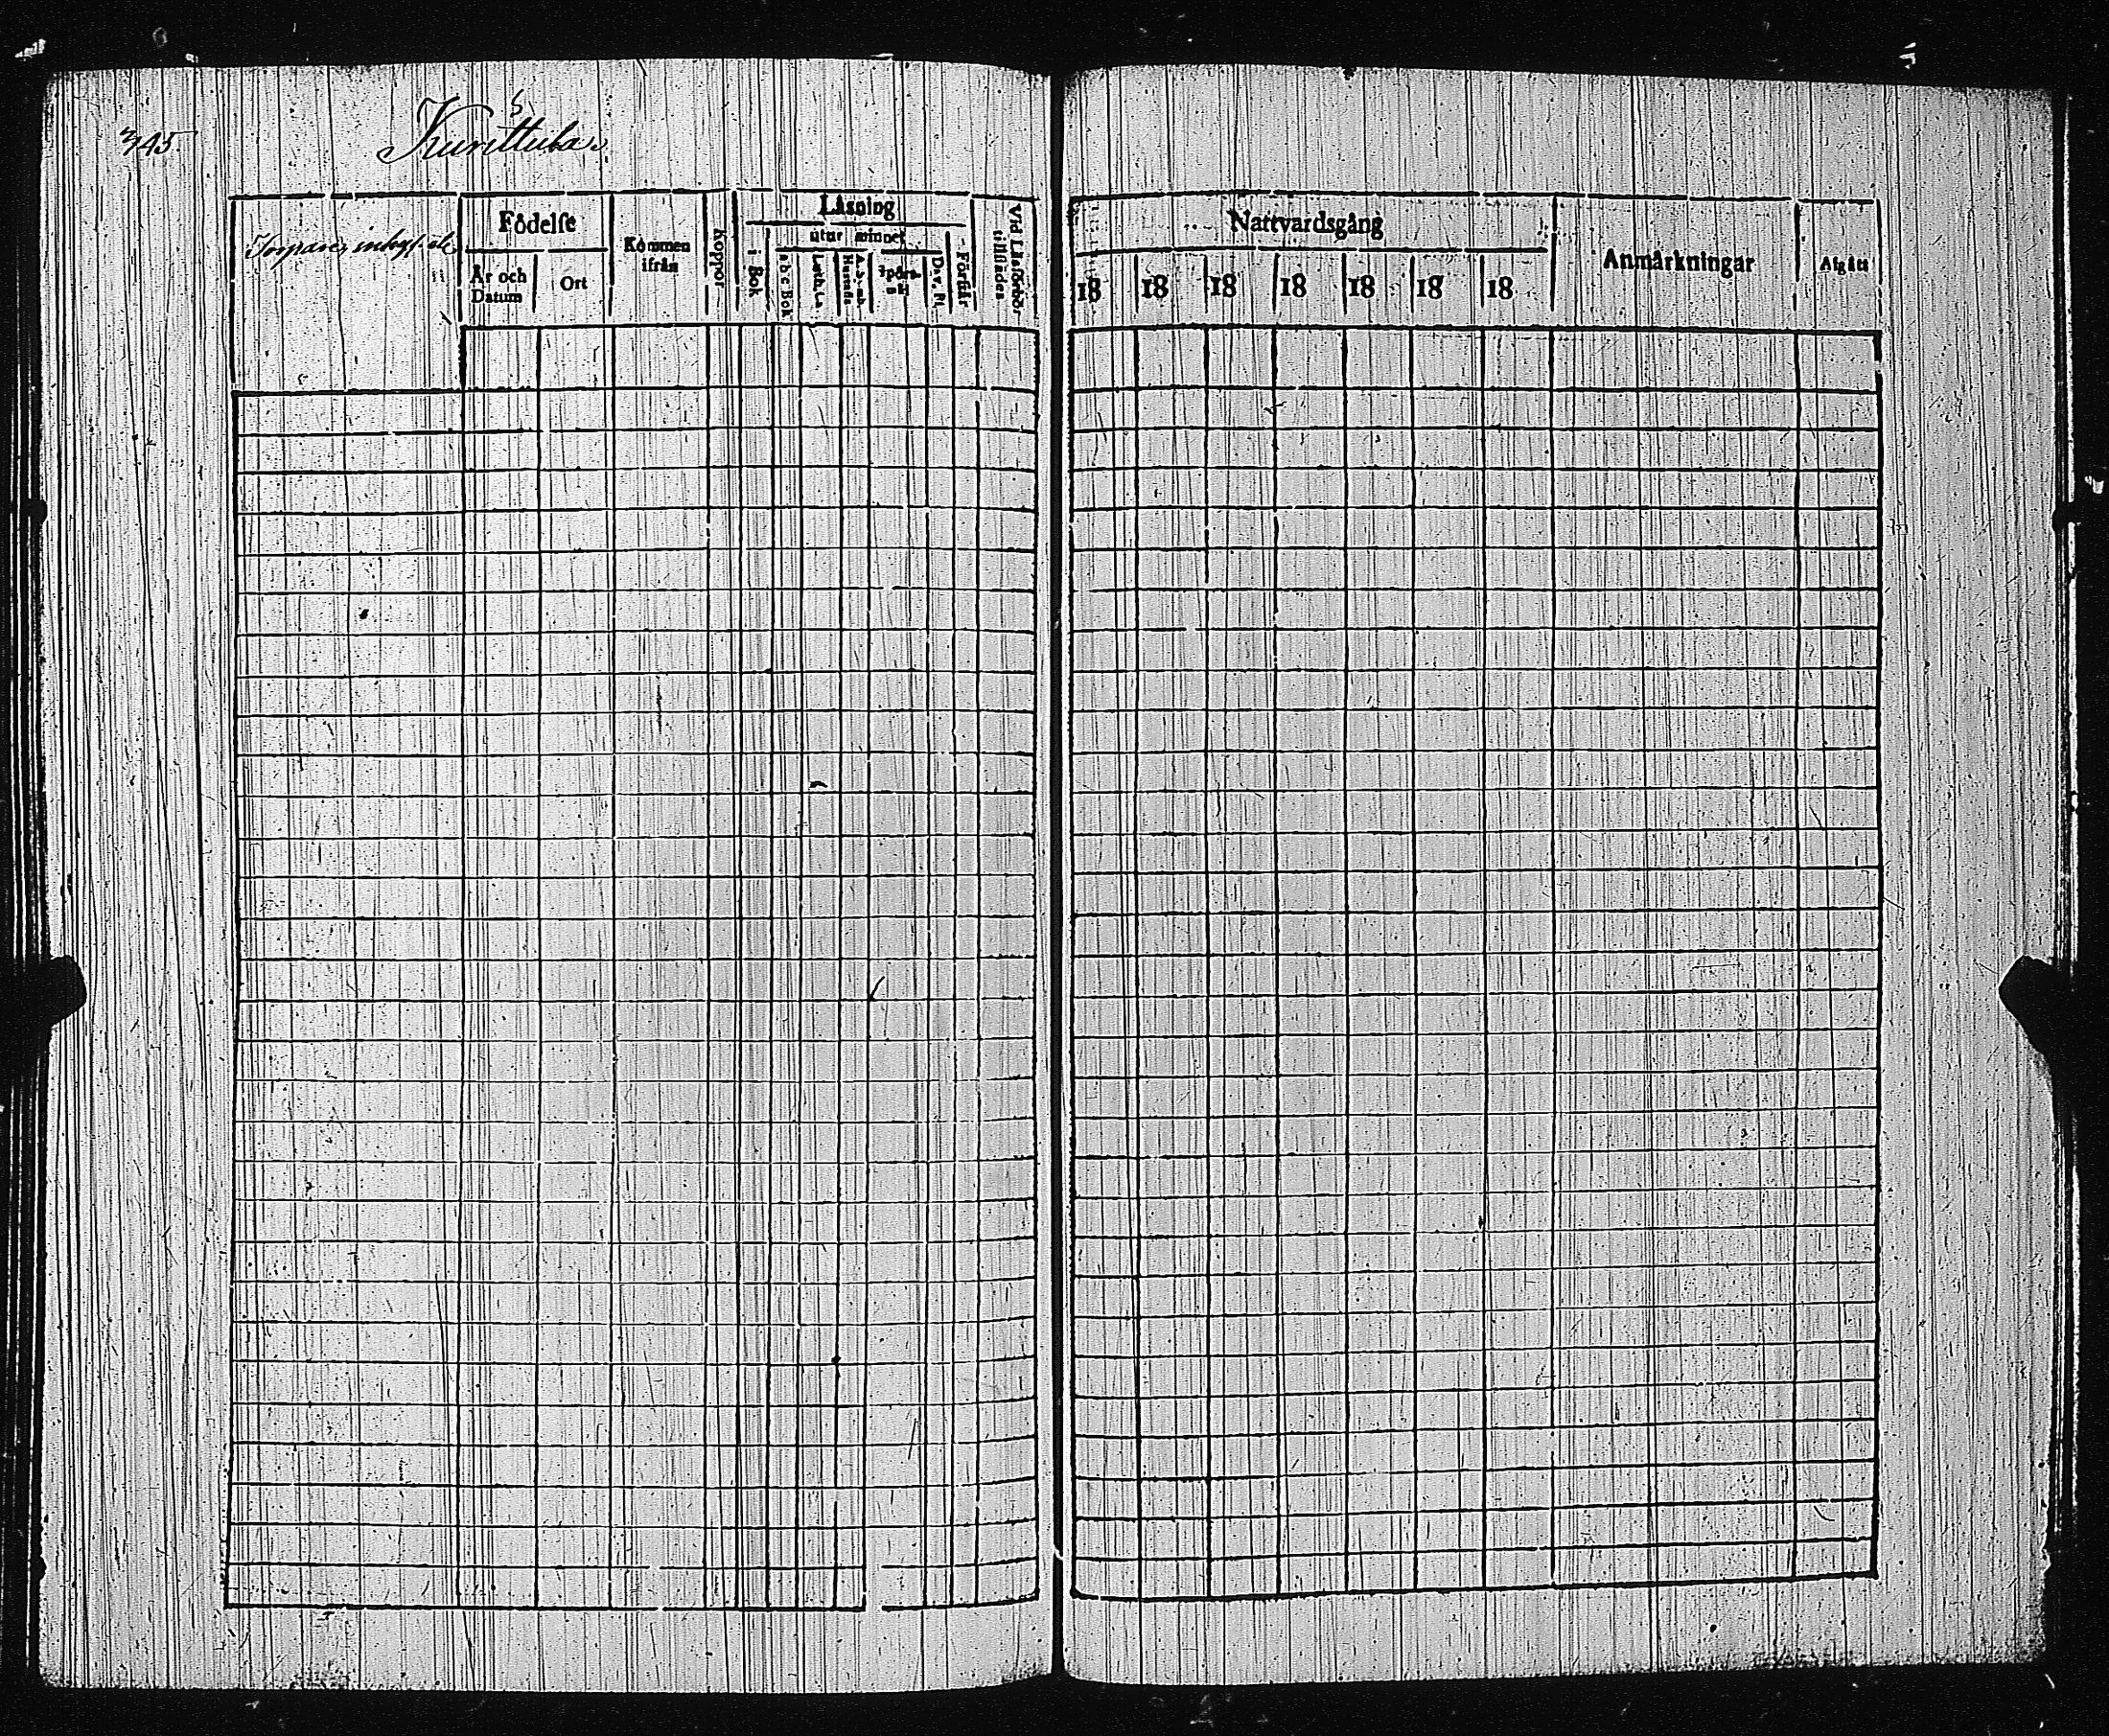 345
Kurittula
Torpare, inhys. etc
Födelse
År och
Datum
Ort
Kommen
ifrån
Koppor
Läsning
i Bok
utur minnet
abc Bok
Luth. C.
Hustafla
Spörsmål
Dav. Ps.
Förstår
Vid Läsförhör
tillstädes
Nattvardsgång
18 18 18 18 18 18 18
Anmärkningar
Afgått